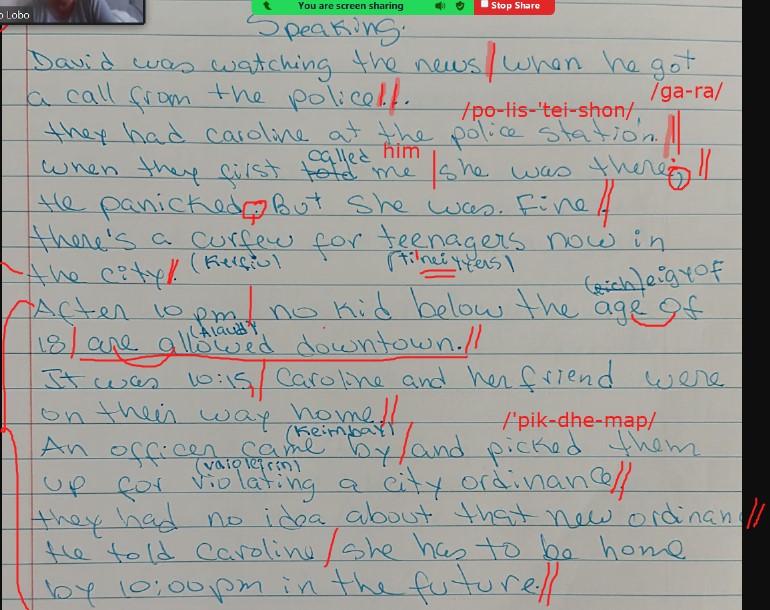 o Lobo
You are screen sharing
Stop Share
Speaking.
David was watching the news | when he got
/ga-ra/
a call from the police //.
/po-lis-'tei-shon/
they had caroline at the police station. //
called him
when they first told me | she was there, //
He panicked. But she was. Fine //
there's a curfew for teenagers now in
(Kerfiu) (tineiyyers)
the city //.
(eich) eigyof
After 10 pm | no kid below the age of
(Alaudt)
18 | are allowed downtown. //
It was 10:15, | Caroline and her friend were
on their way home. //
/'pik-dhe-map/
(Keimbay)
An officer came by / and picked them
(vaioleirin)
up for violating a city ordinance //
they had no idea about that new ordinan //
He told caroline / she has to be home
by 10:00pm in the future. //